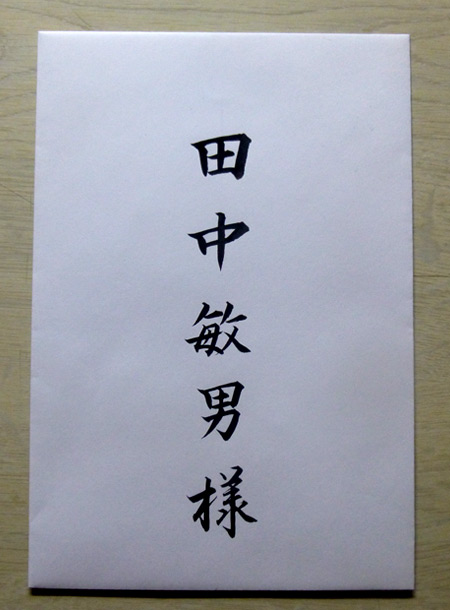 田中敏男様